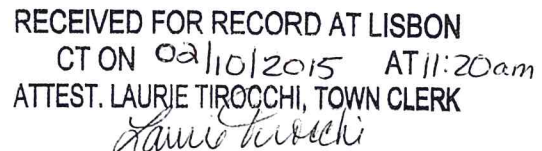 RECEIVED FOR RECORD AT LISBON
CT ON 02/10/2015 AT 11:20am
ATTEST. LAURIE TIROCCHI, TOWN CLERK
Laurie Tirocchi